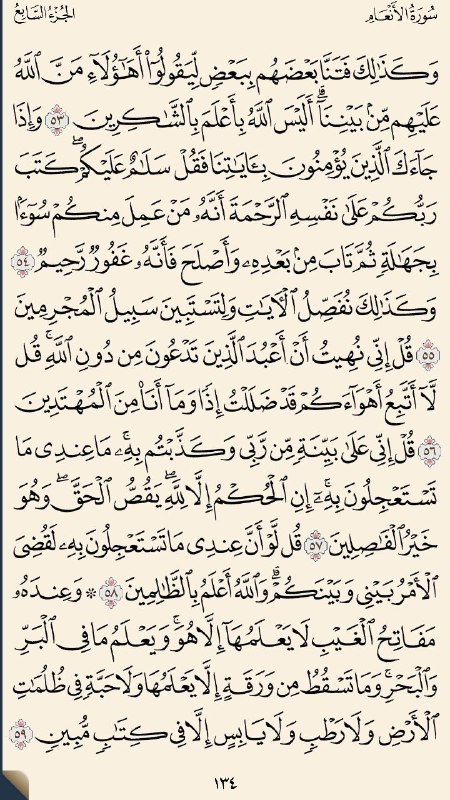 سُورَةُ الأَنْعَامِ الجُزْءُ السَّابِعُ
وَكَذَٰلِكَ فَتَنَّا بَعْضَهُم بِبَعْضٍ لِّيَقُولُوٓا۟ أَهَـٰٓؤُلَآءِ مَنَّ ٱللَّهُ
عَلَيْهِم مِّنۢ بَيْنِنَآ ۗ أَلَيْسَ ٱللَّهُ بِأَعْلَمَ بِٱلشَّـٰكِرِينَ ٥٣ وَإِذَا
جَآءَكَ ٱلَّذِينَ يُؤْمِنُونَ بِـَٔايَـٰتِنَا فَقُلْ سَلَـٰمٌ عَلَيْكُمْ ۖ كَتَبَ
رَبُّكُمْ عَلَىٰ نَفْسِهِ ٱلرَّحْمَةَ أَنَّهُۥ مَنْ عَمِلَ مِنكُمْ سُوٓءًۢا
بِجَهَـٰلَةٍ ثُمَّ تَابَ مِنۢ بَعْدِهِۦ وَأَصْلَحَ فَأَنَّهُۥ غَفُورٌ رَّحِيمٌ ٥٤
وَكَذَٰلِكَ نُفَصِّلُ ٱلْـَٔايَـٰتِ وَلِتَسْتَبِينَ سَبِيلُ ٱلْمُجْرِمِينَ
٥٥ قُلْ إِنِّى نُهِيتُ أَنْ أَعْبُدَ ٱلَّذِينَ تَدْعُونَ مِن دُونِ ٱللَّهِ ۚ قُل
لَّآ أَتَّبِعُ أَهْوَآءَكُمْ ۙ قَدْ ضَلَلْتُ إِذًا وَمَآ أَنَا۠ مِنَ ٱلْمُهْتَدِينَ
٥٦ قُلْ إِنِّى عَلَىٰ بَيِّنَةٍ مِّن رَّبِّى وَكَذَّبْتُم بِهِۦ ۚ مَا عِندِى مَا
تَسْتَعْجِلُونَ بِهِۦٓ ۚ إِنِ ٱلْحُكْمُ إِلَّا لِلَّهِ ۖ يَقُصُّ ٱلْحَقَّ ۖ وَهُوَ
خَيْرُ ٱلْفَـٰصِلِينَ ٥٧ قُل لَّوْ أَنَّ عِندِى مَا تَسْتَعْجِلُونَ بِهِۦ لَقُضِىَ
ٱلْأَمْرُ بَيْنِى وَبَيْنَكُمْ ۗ وَٱللَّهُ أَعْلَمُ بِٱلظَّـٰلِمِينَ ٥٨ ۞ وَعِندَهُۥ
مَفَاتِحُ ٱلْغَيْبِ لَا يَعْلَمُهَآ إِلَّا هُوَ ۚ وَيَعْلَمُ مَا فِى ٱلْبَرِّ
وَٱلْبَحْرِ ۚ وَمَا تَسْقُطُ مِن وَرَقَةٍ إِلَّا يَعْلَمُهَا وَلَا حَبَّةٍ فِى ظُلُمَـٰتِ
ٱلْأَرْضِ وَلَا رَطْبٍ وَلَا يَابِسٍ إِلَّا فِى كِتَـٰبٍ مُّبِينٍ ٥٩
١٣٤